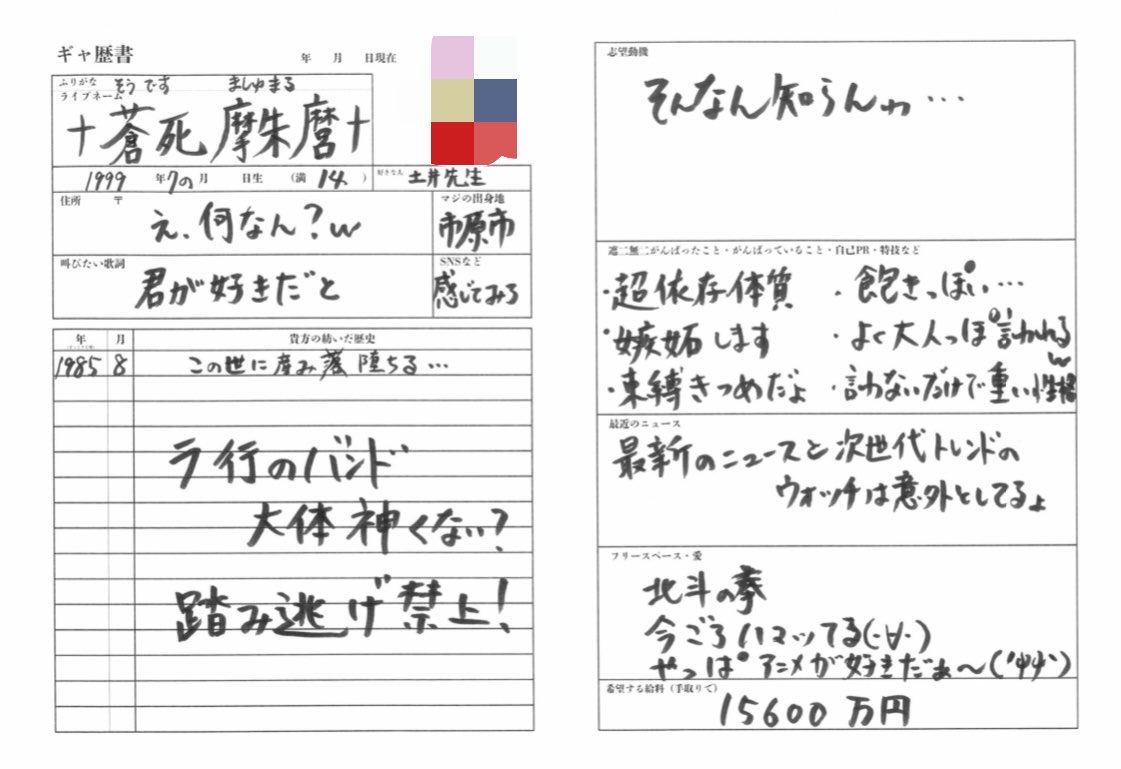 ギャ歴書
年 月 日現在
ふりがな そうです ましゅまる
ライブネーム
†蒼死 摩朱麿†
1999 年 7の 月 日生 (満 14 )
好きな人 土井先生
住所 〒
え、何なん?w
マジの出身地
市原市
叫びたい歌詞
君が好きだと
SNSなど
感じてみろ
年 月 貴方の紡いだ歴史
1985 8 この世に産み落 堕ちる…
ラ行のバンド
大体神くない?
踏み逃げ禁止!
志望動機
そんなん知らんわ…
遮二無二がんばったこと・がんばっていること・自己PR・特技など
・超依存体質 ・飽きっぽい…
・嫉妬します ・よく大人っぽい言われるw
・束縛きつめだよ ・言わないだけで重い性格
最近のニュース
最新のニュースと次世代トレンドの
ウォッチは意外としてるよ
フリースペース・愛
北斗の拳
今ごろハマッてる(・∀・)
やっぱアニメが好きだぁ〜(艸)
希望する給料(手取りで)
15600 万円